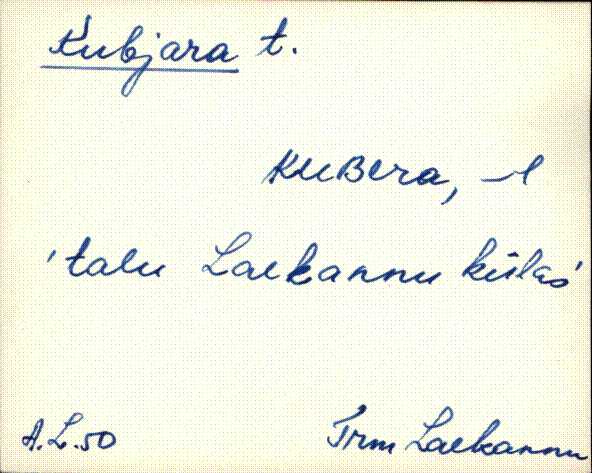 Kubjara t.
KuBera, -l
'talu Laekannu külas'
A.L.50
Trm Laekannu